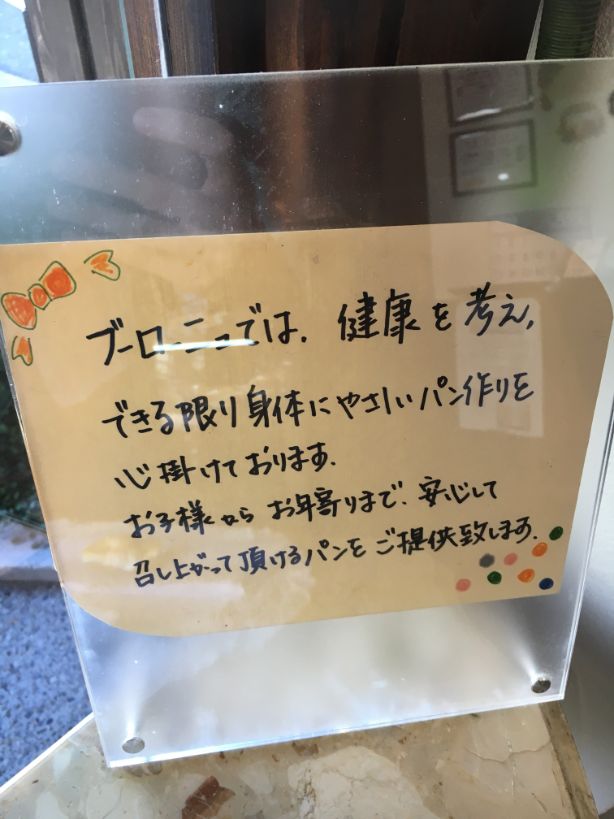 ブーローニュでは、健康を考え、
できる限り身体にやさしいパン作りを
心掛けております。
お子様からお年寄りまで、安心して
召し上がって頂けるパンをご提供致します。